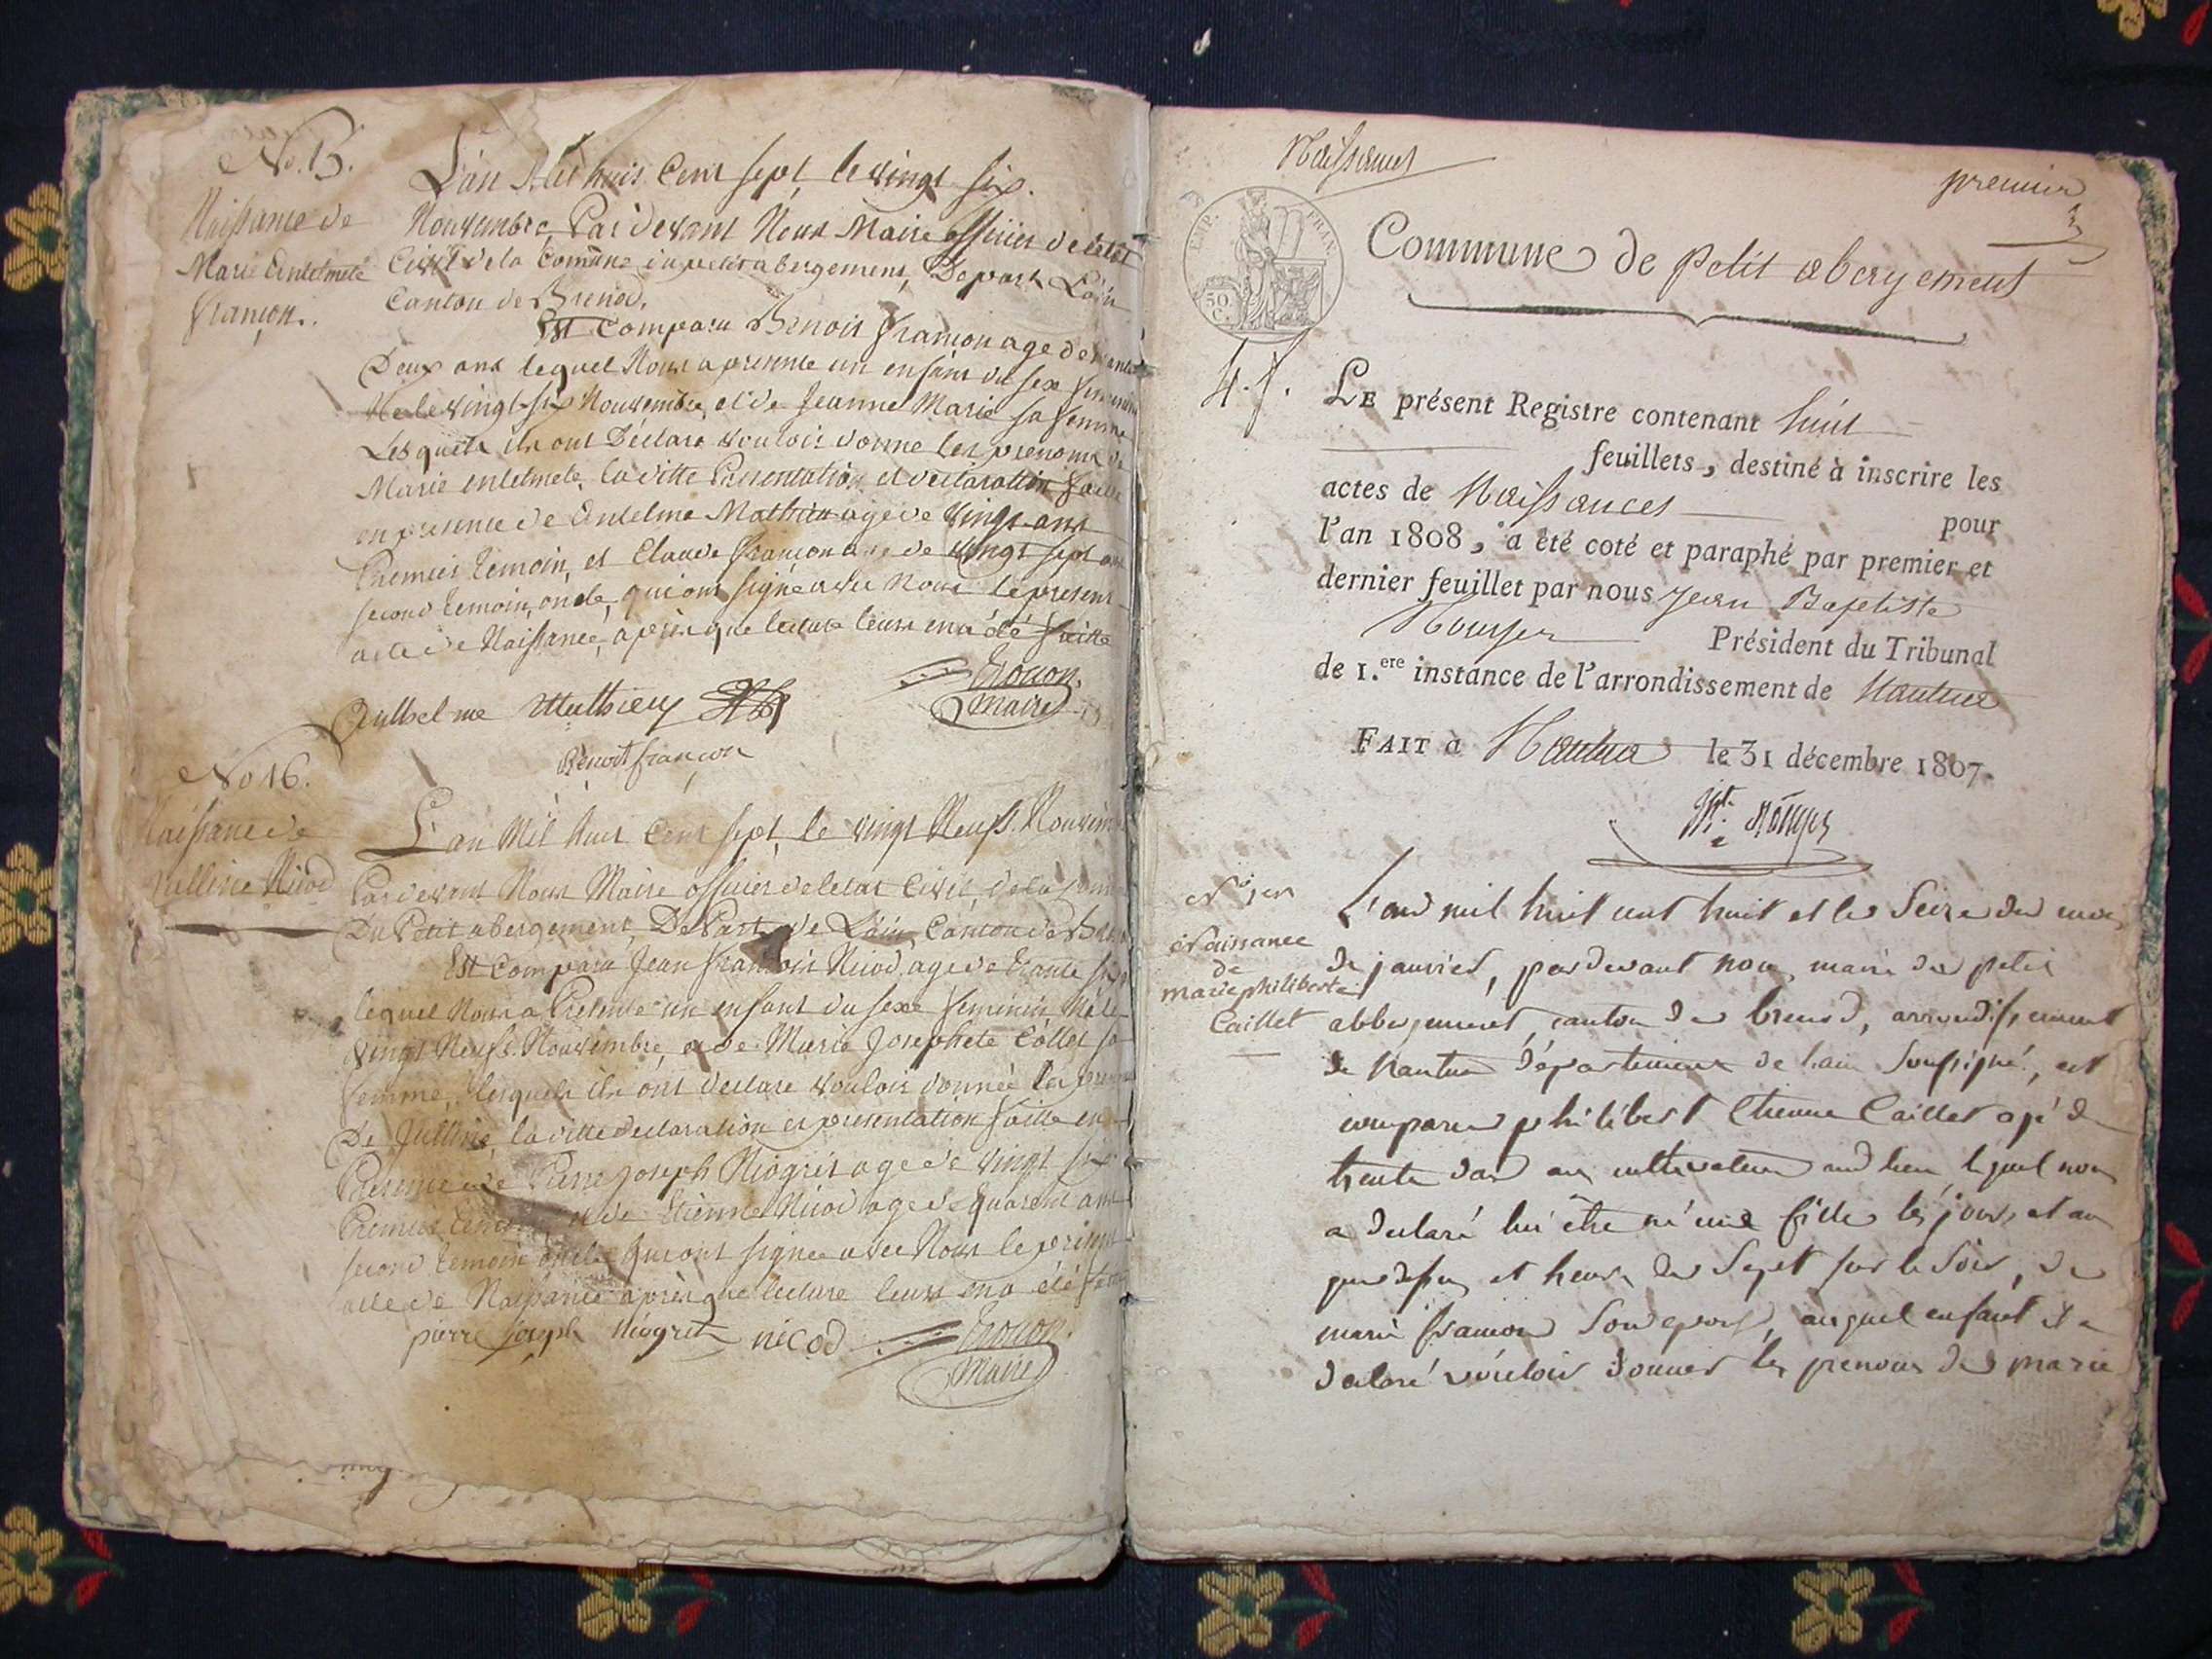 No. 15.
Naissance de
Marie Entelmete
françon.
L'an Mil huis Cent sept, le vingt six.
Nouvembre, Par devant Nous Maire officier de l'etat
Civil de la Commune du petit abergement, Depart. L'ain
Canton de Brenod.
Est Comparu Benoit françon age de
Deux ans lequel Nous a presente un enfant du sex feminin
Ne le vingt-six Nouvembre, et de Jeanne Marie sa femme
Lesquels ils ont Déclaré vouloir donne les prenoms de
Marie entelmete, la ditte Presentation et declaration faitte
en presence de Antelme Mathieu age de vingt ans
Premier temoin, et Claude françon age de vingt sept ans
second temoin, oncle, qui ont signé avec Nous le present
acte de Naissance, après que lecture leurs en a été faitte
Anthelme Mathieu
Trocon.
Maire
Benoit françon
No 16.
Naissance de
Julline Nicod
L'an Mil huis Cent sept, le vingt Neufs Nouvembre
Par devant Nous Maire officier de l'etat Civil, de la Com
Du Petit abergement, De Part. de L'ain, Canton de
Est Comparu Jean françois Nicod, age de trante six
lequel Nous a Presente un enfant du sexe feminin Né le
vingt Neufs Nouvembre, et de Marie Josephete Collet sa
femme, lesquels ils ont declare vouloir donnée les prenoms
De Julline, la ditte declaration et presentation faitte en
Presence de Pierre Joseph Niogret age de vingt six
Premier temoin, et de Etienne Nicod age de quarent ans
second temoin oncle qui ont signee avec Nous le present
acte de Naissance après que lecture leurs en a été faitte
pierre joseph Niogret nicod
Trocon.
Maire
Naissances
premier
EMP. FRAN.
50 C.
Commune de petit abergement
4. f.
LE présent Registre contenant huit
feuillets, destiné à inscrire les
actes de Naissances pour
l'an 1808, a été coté et paraphé par premier et
dernier feuillet par nous Jean Baptiste
Rouyer Président du Tribunal
de 1.ere instance de l'arrondissement de Nantua
FAIT à Nantua le 31 décembre 1807.
Rouyer
N.o 1er
Naissance
de
marie philiberte
Caillet
L'an mil huit cent huit et le Seize du mois
de janvier, pardevant nous, maire du petit
abbergement, canton de brenod, arrondissement
de Nantua département de l'ain soussigné, est
comparu philibert Etienne Caillet agé de
trente ans cultivateur aud lieu, lequel nous
a declaré lui être né une fille les jours et an
que dessus et heure de Sept sur le Soir, de
marie françon Son epouse, auquel enfant il a
déclaré vouloir donner les prenoms de marie